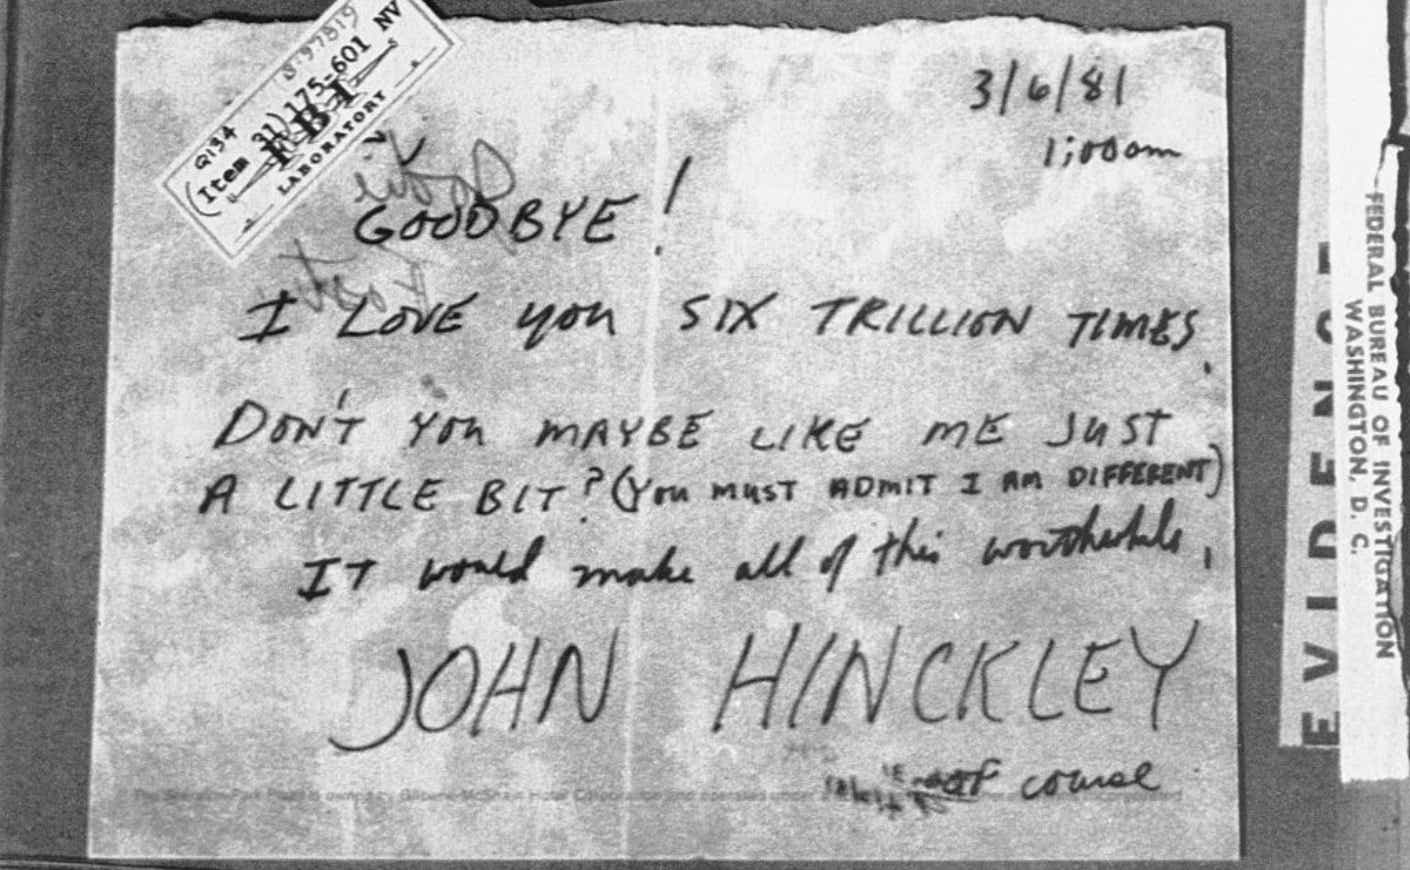 Q134
(Item 31) 175-601 NV
FBI
LABORATORY
3/6/81
1:00am
GOODBYE!
I LOVE you SIX TRILLION TIMES.
DON'T YOU MAYBE LIKE ME JUST
A LITTLE BIT? (YOU MUST ADMIT I AM DIFFERENT)
IT would make all of this worthwhile.
JOHN HINCKLEY
of course
EVIDENCE
FEDERAL BUREAU OF INVESTIGATION
WASHINGTON, D. C.